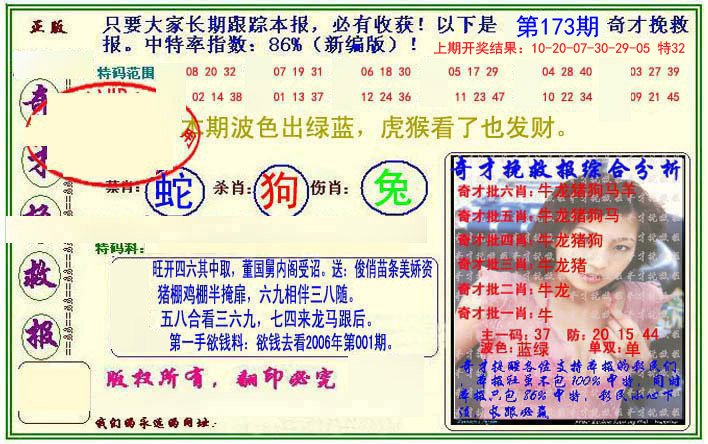 正版
只要大家长期跟踪本报，必有收获！以下是 第173期 奇才挽救
报。中特率指数：86%（新编版）！ 上期开奖结果：10-20-07-30-29-05 特32
特码范围 08 20 32 07 19 31 06 18 30 05 17 29 04 28 40 03 27 39
02 14 38 01 13 37 12 24 36 11 23 47 10 22 34 09 21 45
本期波色出绿蓝，虎猴看了也发财。
蛇 杀肖：狗 伤肖：兔
特码科：
旺开四六其中取，董国舅内阁受诏。送：俊俏苗条美娇资
猪棚鸡棚半掩扉，六九相伴三八随。
五八合看三六九，七四来龙马跟后。
第一手欲钱料：欲钱去看2006年第001期。
版权所有，翻印必究
我们的永远的网址：
奇
才
救
报
奇才挽救报综合分析
奇才批六肖：牛龙猪狗马羊
奇才批五肖：牛龙猪狗马
奇才批四肖：牛龙猪狗
奇才批三肖：牛龙猪
奇才批二肖：牛龙
奇才批一肖：牛
主一码：37 防：20 15 44
波色：蓝绿 单双：单
奇才提醒各位支持本报的彩民们
，本报社虽不包100%中特，同时
本报只包86%中特，彩民小心下
注，长跟必赢